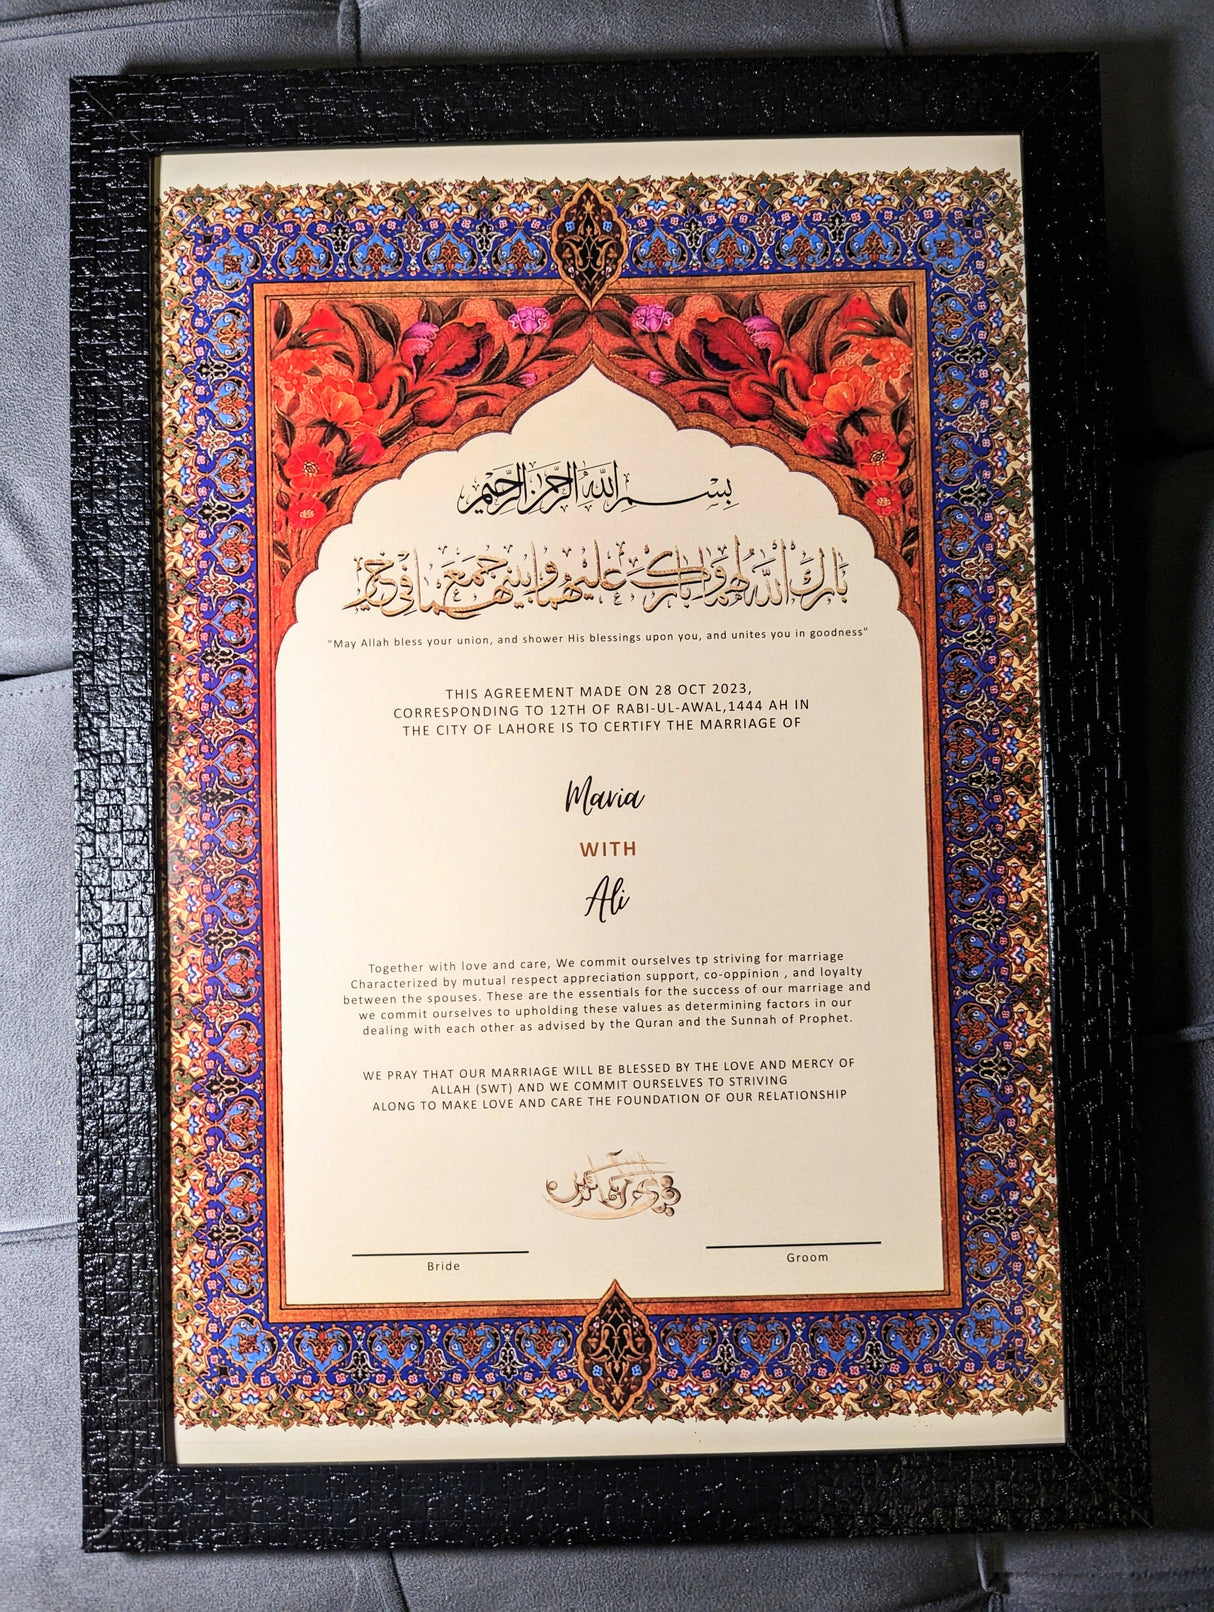 بسم الله الرحمن الرحيم
بارك الله لهما وبارك عليهما وجمع بينهما في خير
"May Allah bless your union, and shower His blessings upon you, and unites you in goodness"
THIS AGREEMENT MADE ON 28 OCT 2023,
CORRESPONDING TO 12TH OF RABI-UL-AWAL,1444 AH IN
THE CITY OF LAHORE IS TO CERTIFY THE MARRIAGE OF
Maria
WITH
Ali
Together with love and care, We commit ourselves tp striving for marriage
Characterized by mutual respect appreciation support, co-oppinion , and loyalty
between the spouses. These are the essentials for the success of our marriage and
we commit ourselves to upholding these values as determining factors in our
dealing with each other as advised by the Quran and the Sunnah of Prophet.
WE PRAY THAT OUR MARRIAGE WILL BE BLESSED BY THE LOVE AND MERCY OF
ALLAH (SWT) AND WE COMMIT OURSELVES TO STRIVING
ALONG TO MAKE LOVE AND CARE THE FOUNDATION OF OUR RELATIONSHIP
Bride
Groom